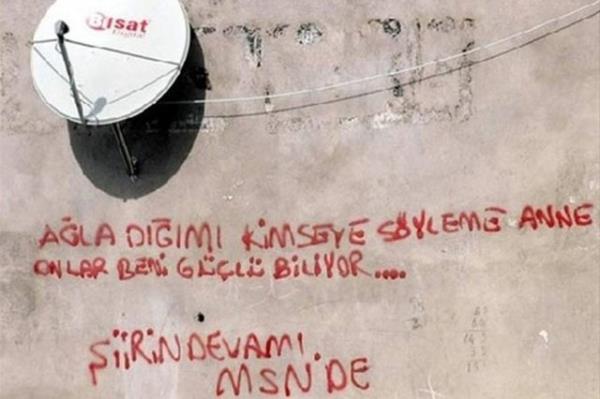 Bisat
Digital
AĞLADIĞIMI KİMSEYE SÖYLEME ANNE
ONLAR BENİ GÜÇLÜ BİLİYOR....
ŞİİRİN DEVAMI
MSN'DE